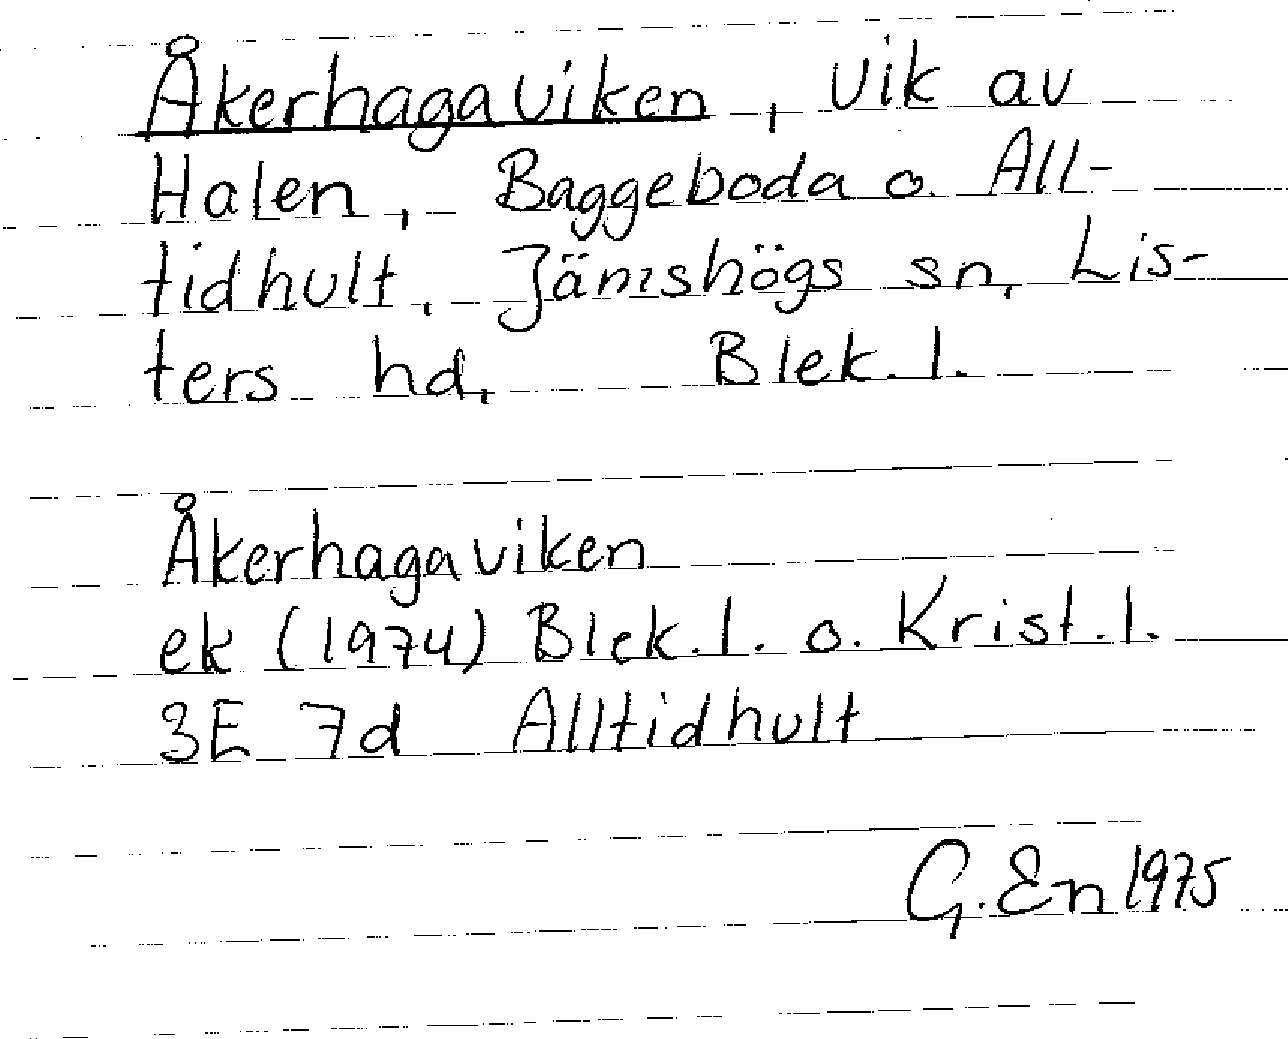 Åkerhagaviken, vik av
Halen, Baggeboda o. All-
tidhult, Jämshögs sn, Lis-
ters hd, Blek. l.
Åkerhagaviken
ek (1974) Blek. l. o. Krist. l.
3E 7d Alltidhult
G. En 1975